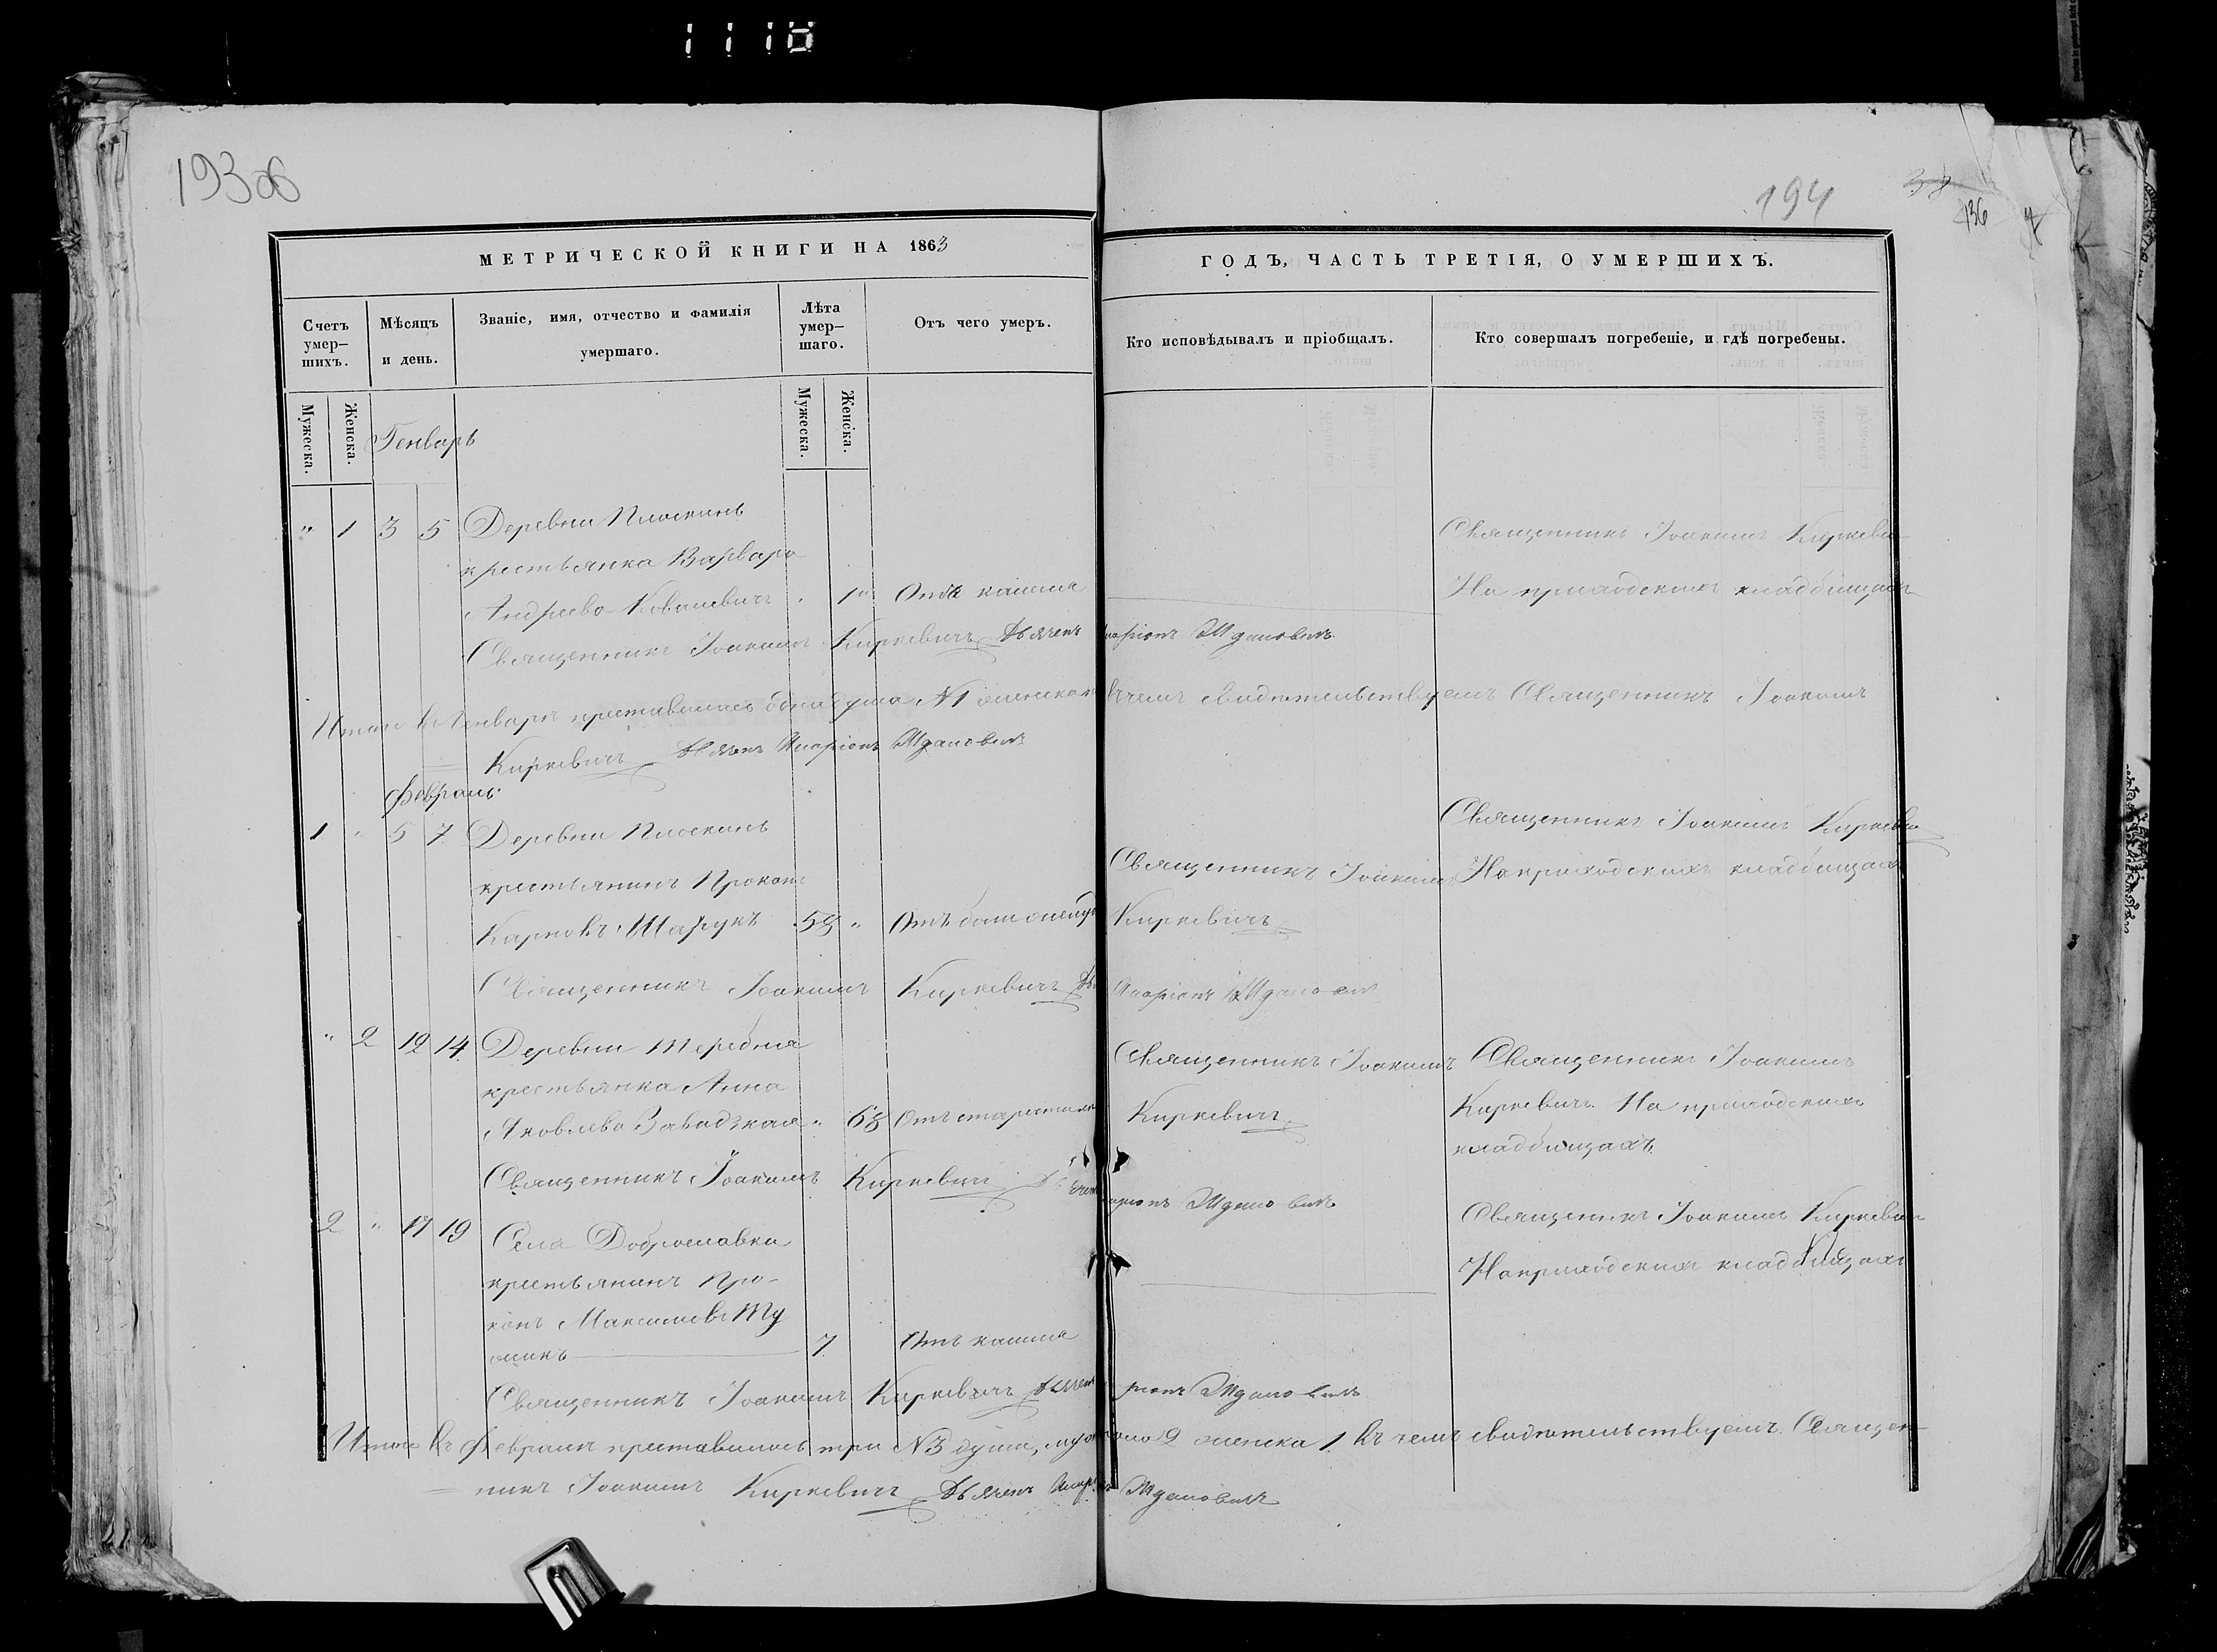 1110
193об
194
38
136
МЕТРИЧЕСКОЙ КНИГИ НА 1863
ГОДЪ, ЧАСТЬ ТРЕТІЯ, О УМЕРШИХЪ.
Счетъ умер-шихъ.
Мѣсяцъ и день.
Званіе, имя, отчество и фамилія умершаго.
Лѣта умер-шаго.
Отъ чего умеръ.
Кто исповѣдывалъ и пріобщалъ.
Кто совершалъ погребеніе, и гдѣ погребены.
Мужеска.
Женска.
Мужеска.
Женска.
Генварь
" 1 3 5 Деревни Плоскинь
крестьянка Варвара
Андреева Ковалевичъ 1 Отъ кашля
Священникъ Іоакимъ Киркевичъ
На приходскихъ кладбищахъ
Священникъ Іоакимъ Киркевичъ Дьячекъ Иларіонъ Ждановичъ
Итого въ Генварѣ преставилась одна душа №1 женска въ чемъ свидѣтельствуемъ Священникъ Іоакимъ
Киркевичъ Дьячекъ Иларіонъ Ждановичъ
Февраль
1 " 5 7 Деревни Плоскинь
крестьянинъ Прокопъ
Карповъ 58 "
Священникъ Іоакимъ
Киркевичъ
Священникъ Іоакимъ Киркевичъ
На приходскихъ кладбищахъ
Священникъ Іоакимъ Киркевичъ Иларіонъ Ждановичъ
" 2 12 14 Деревни Теребня
крестьянка Анна
Яковлева Завадзкая " 68 Отъ старости
Священникъ Іоакимъ
Киркевичъ
Священникъ Іоакимъ
Киркевичъ. На приходскихъ
кладбищахъ
Священникъ Іоакимъ Киркевичъ Дьячекъ Иларіонъ Ждановичъ
2 " 17 19 Села Доброславки
крестьянинъ Про-
копъ Максимовъ 7 Отъ кашля
Священникъ Іоакимъ Киркевичъ
На приходскихъ кладбищахъ
Священникъ Іоакимъ Киркевичъ Дьячекъ Иларіонъ Ждановичъ
Итого въ Февралѣ преставилось три №3 души, мужеска 2 женска 1. въ чемъ свидѣтельствуемъ. Священ-
никъ Іоакимъ Киркевичъ Дьячекъ Иларіонъ Ждановичъ